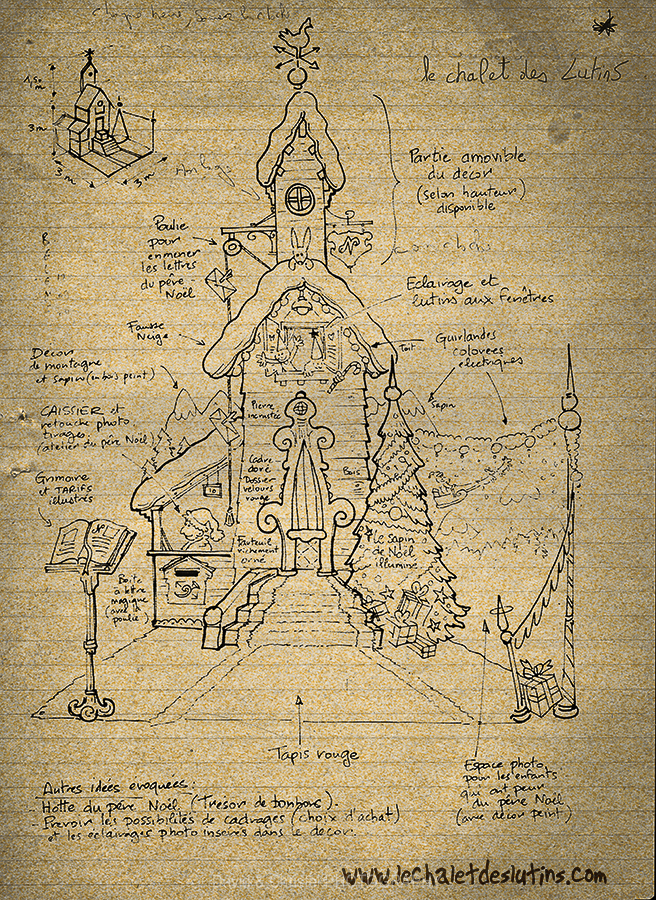 le chalet des Lutins
4,50 m
3m
3m
3m
Partie amovible
du decor
(selon hauteur)
disponible
Poulie
pour
enmener
les lettres
du père
Noël
Eclairage et
lutins aux fenêtres
Fausse
Neige
toit
Guirlandes
colorées
electriques
Decor
de montagne
et sapin (en bois peint)
Sapin
CAISSIER et
retouche photo
tirages
(atelier du père Noël)
Pierre
incrustée
Cadre
doré
Dossier
velours
rouge
Bois
Grimoire
et TARIFS
illustrés
Fauteuil
richement
orné
Le Sapin
de Noël
illuminé
Boite
à lettre
magique
(avec
poulie)
Tapis rouge
Espace photo
pour les enfants
qui ont peur
du père Noël
(avec décor peint)
Autres idées évoquées:
- Hotte du père Noël (Tresor de bonbons).
- Prevoir les possibilités de cadrages (choix d'achat)
et les éclairages photo insérés dans le decor.
www.lechaletdeslutins.com